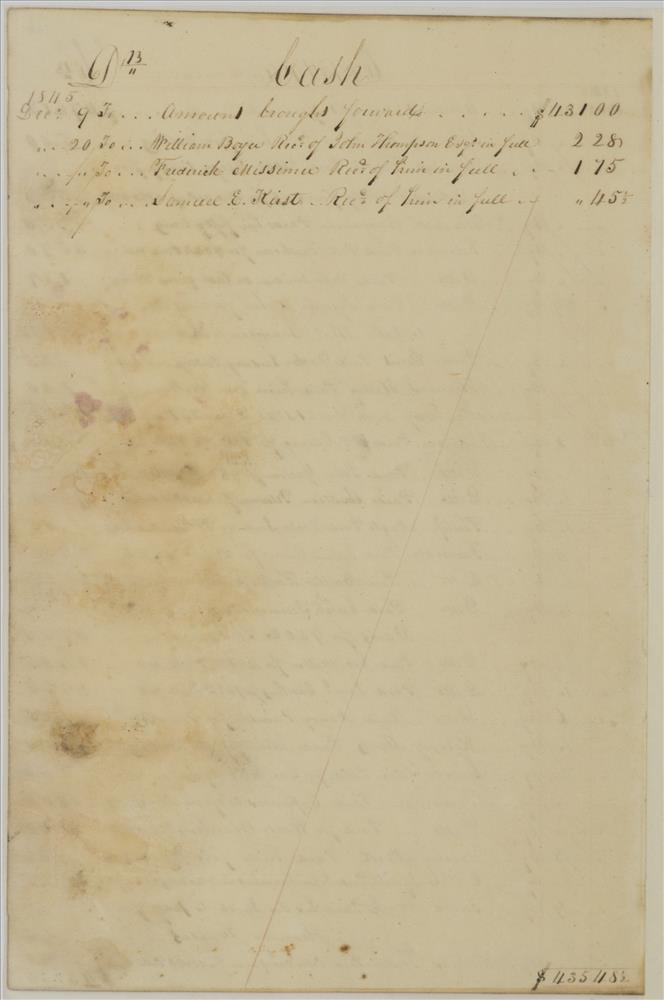 Dr 13 Cash
1845
Decr 9 To... Amount brought forwards ...... $431 00
" .. 20 To... William Boyer Recd of John Thompson Esqr in full 2 28
" .. " To... Frederick Missimer Recd of him in full . . 1 75
" .. " To... Samuel E. Hirst . Recd of him in full .. " 45½
$435 48½